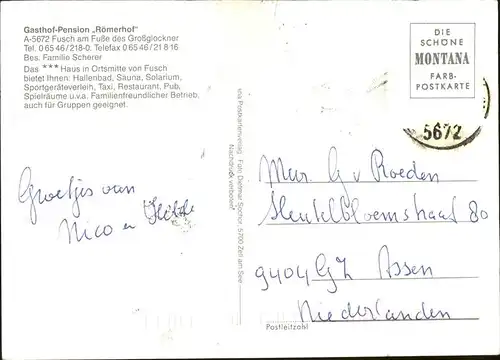 Gasthof-Pension „Römerhof"
A-5672 Fusch am Fuße des Großglockner
Tel. 0 65 46/218-0. Telefax 0 65 46/21 8 16
Bes. Familie Scherer
Das *** Haus in Ortsmitte von Fusch
bietet Ihnen: Hallenbad, Sauna, Solarium,
Sportgeräteverleih, Taxi, Restaurant, Pub,
Spielräume u.v.a. Familienfreundlicher Betrieb,
auch für Gruppen geeignet.
Groetjes van
Nico en
via Postkartenverlag · Foto Dietmar Sochor, 5700 Zell am See
Nachdruck verboten!
DIE
SCHÖNE
MONTANA
FARB-
POSTKARTE
5672
G v Roeden
Sleutelbloemstraat 80
9404 GZ Assen
Niederlanden
Postleitzahl